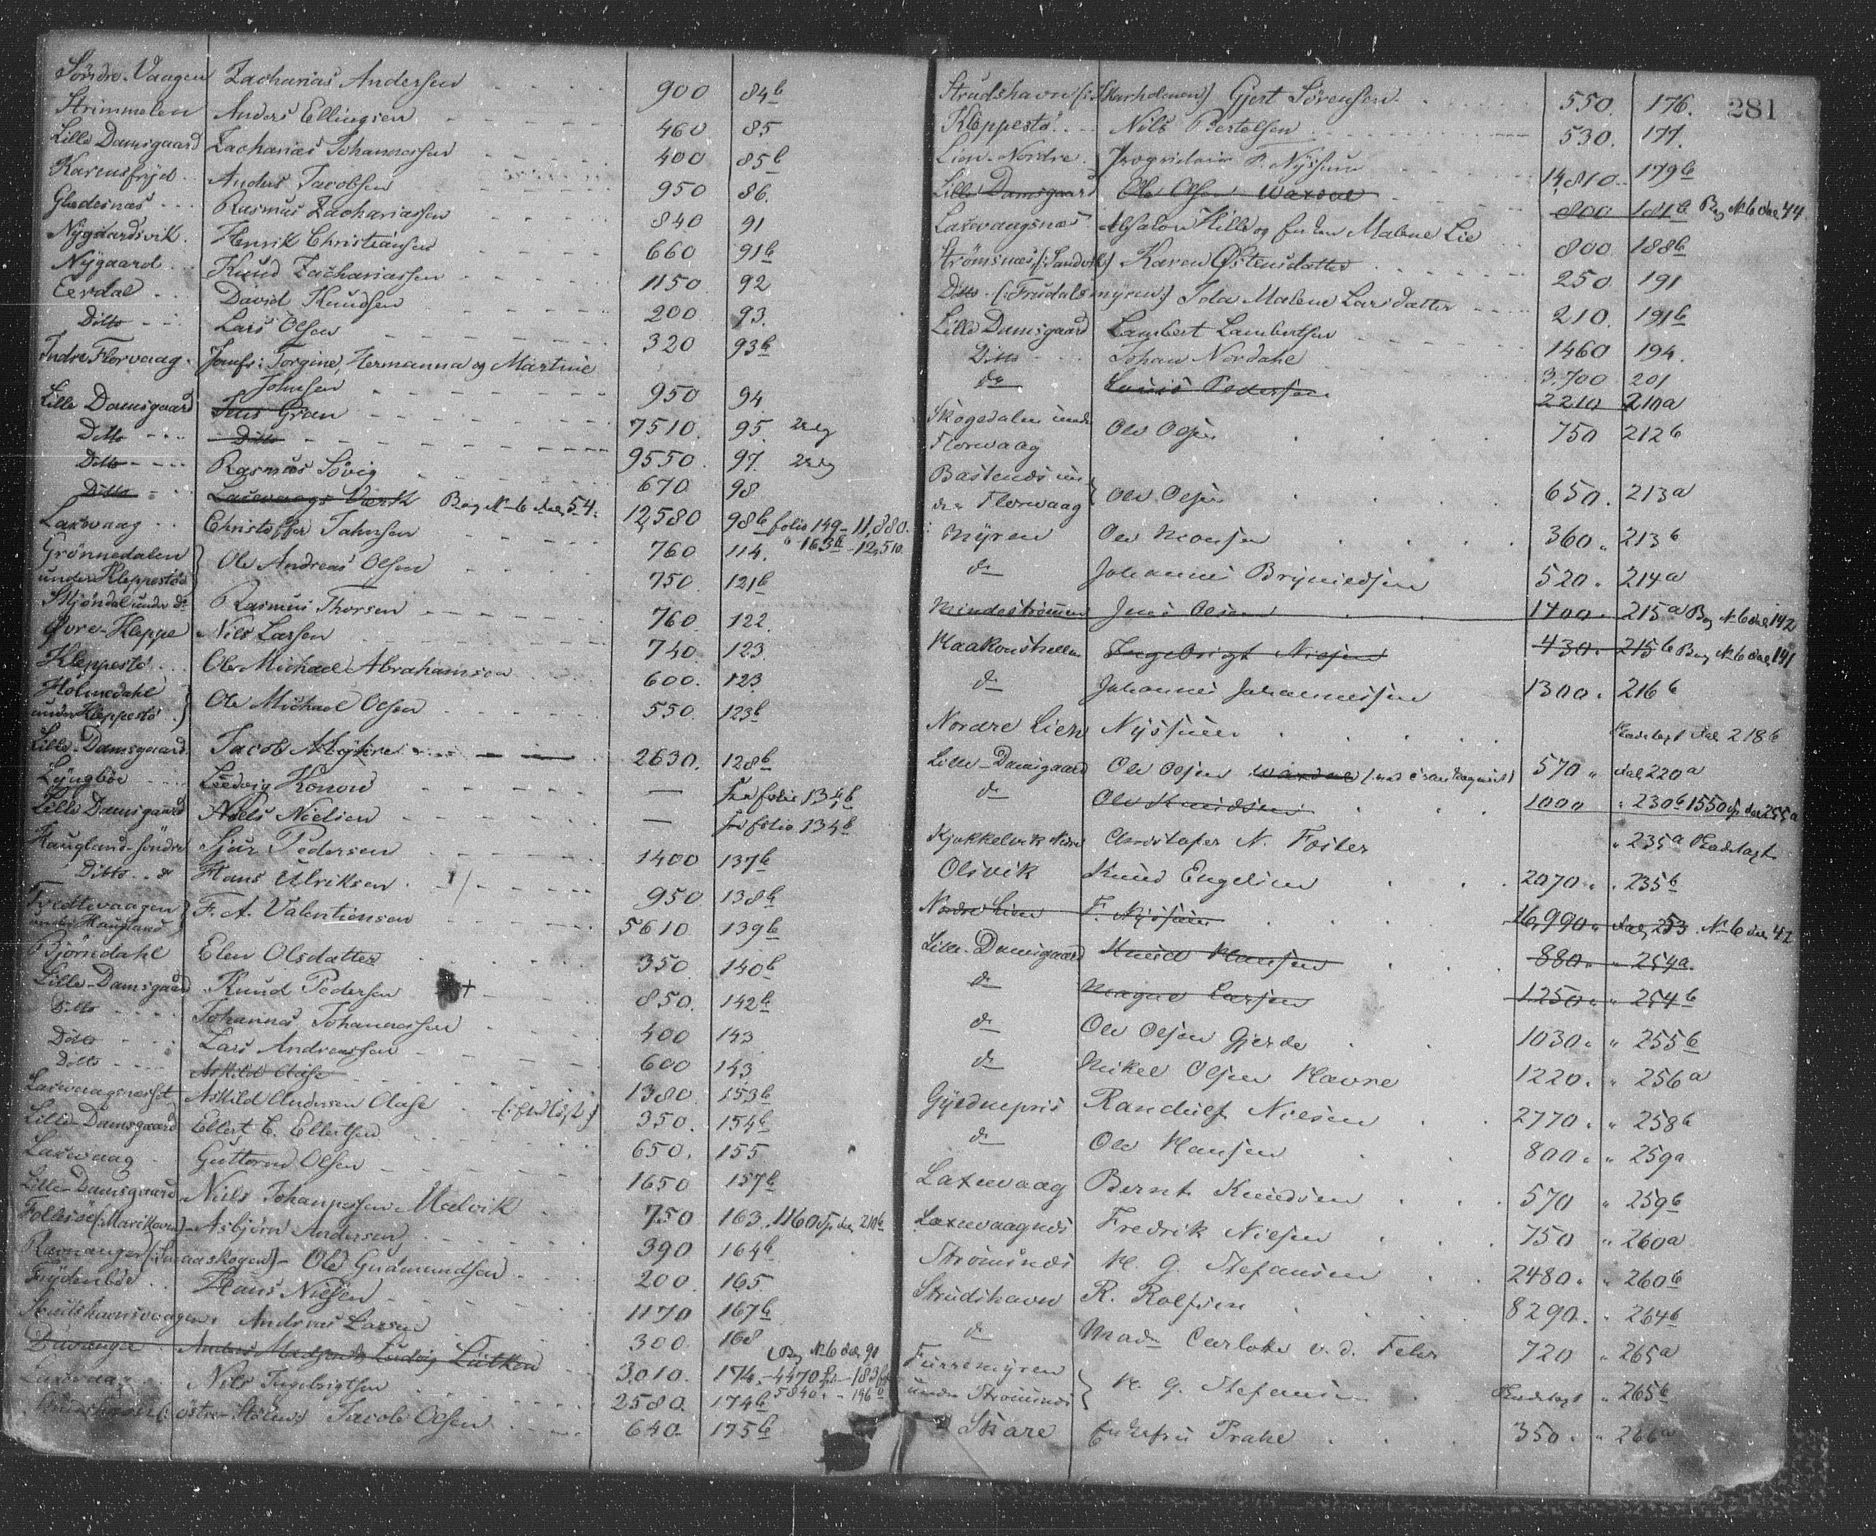 Søndre-Vaagen Zacharias Andersen 900 84b
Strimmelen Anders Ellingsen 460 85
Lille Damsgaard Zacharias Johannessen 400 85b
Karensfryd Anders Jacobsen 950 86.
Gladesnæs Rasmus Zachariassen 840 91
Nygaardsvik. Henrik Christiansen 660 91b
Nygaard Knud Zachariassen 1150 92
Eerdal David Knudsen 200 93.
Ditto Lars Olsen 320 93b
Indre Florvaag. Jomfr: Torgine, Hermanna og Martine
Johnsen 950 94
Lille Damsgaard Jens Gran 7510 95.
Ditto Ditto 9550. 97.
Ditto Rasmus Søvig 670 98
Ditto Laxevaags Værk Bog No 6 dal 54. 12,580 98b folio 149 - 11,880.
Laxevaag Christoffer Jahnsen 760 114. " 163b - 12,510
Grønnedalen
under Kleppestø } Ole Andreas Olsen 750. 121b
Mjøndal under do Rasmus Thorsen 760. 122.
Øvre-Kleppe Nils Larsen 740. 123.
Kleppestø Ole Michael Abrahamson 600. 123
Holmedahl
under Kleppestø } Ole Michael Olsen 550. 123b
Lille-Damsgaard Jacob 2630. 128b
Lyngbøe Ludvig Konow — See folio 134b
Lille Damsgaard Niels Nielsen — see folio 134b
Haugland-Søndre Sjur Pedersen 1400 137b
Ditto do Hans Ulriksen 950 138b
Tvedtevaagen
under Haugland } F. A. Valentiensen 5610 139b
Bjørndahl Elen Olsdatter 350. 140b
Lille-Damsgaard Knud Pedersen 850. 142b
Ditto Johannes Johannessen 400 143
Ditto Lars Andreassen 600 143
Ditto Askild Aase 1380. 153b
Laxevaagnæsset Askild Andersen Aase 350. 154b
Lille-Damsgaard Ellert E. Ellertsen 650. 155
Laxevaag Guttorm Olsen 1650 157b
Lille-Damsgaard Niels Johannessen Malvik 750 163. 1160 Sp dal 210b
Follesøe (Marikoven) - Asbjørn Andersen 390 164b
Ravnanger (Smaaskogen) - Ole Gudmundsen 200. 165
Frydenbøe Hans Nielsen 1170 167b
Strudshavnsvaagen. Andreas Larsen 300. 168
Andreas Ludvig Lütken 3,010. 174. 4470 Sp - 183b Bog No 6 dal 90
Laxevaag Nils Ingebrigtsen 2580. 174b 5840. - 196b
Strudshavn (: østre Stølen) Jacob Olsen 640. 175b
281
Strudshavn (: Skarholmen) Gjert Sørensen 550. 176.
Kleppestø. Nils Bertelsen 530. 177.
Lien-Nordre. Proprietair F. Nyssum 14,810. 179b
Lille Damsgaard Ole Olsen Waxdal 800 181b Bog No 6 dal 44
Laxevaagsnæs Absalon Hille og Enken Malene Lie 800 188b
Strømsnæs (: Sandvik) Karen Østensdatter 250 191
Ditto (: Frudalsmyren) Ida Malene Larsdatter 210. 191b
Lille Damsgaard Lambert Lambertsen 1460 194.
Ditto Johan Nordahl 3,700 201
do Louis Pedersen 2210 210a
Skogedalen under
Florvaag Ole Olsen 750 212b
Bastenes un
der Florvaag } Ole Olsen 650. 213a
Myren Ole Monsen 360 " 213b
do Johannes Bryneldsen 520 " 214a
Mindestrømmen Jens Olsen 1400 215a Bog No 6 dal 142
Haakonshellen Ingebrigt Nielsen 430. 215b Bog No 6 dal 141
do Johannes Johannessen 1300 " 216b
Nordre Lien Nyssum Pladelagt dal 218b
Lille-Damsgaard Ole Olsen Waxdal 570 " dal 220a
do Ole Knudsen 1000 " 230b 1550 Sp dal 255a
Kjøkkelvik Nedre Christofer N. Foster " 235a Pladelagt
Olsvik Knud Engelsen 2070 " " 235b
Nordre Lien F. Nyssum 16,990 " dal 253. No 6 dal 42
Lille-Damsgaard Knud Hansen 880. " 254a
do Magne Larsen 1250 " " 254b
do Ole Olsen Gjerde 1030. " 255b
do Mikel Olsen Havre 1220. " 256a
Gyldenpris Randulf Nielsen 2770 " " 258b
do Ole Hansen 800. " 259a
Laxevaag Bernt Knudsen 570 " 259b
Laxevaagnæs Fredrik Nielsen 750 " 260a
Strømsnæs H. G. Stefansen 2480. " 260b
Strudshavn R. Rolfsen 8290. " 264b
do Madm Carlotte v. d. Fehr 720 " 265a
Furremyren
under Strømsnæs } H. G. Stefansen Pladelagt " 265b
Skare Enkefru Prahl 350. " 266a